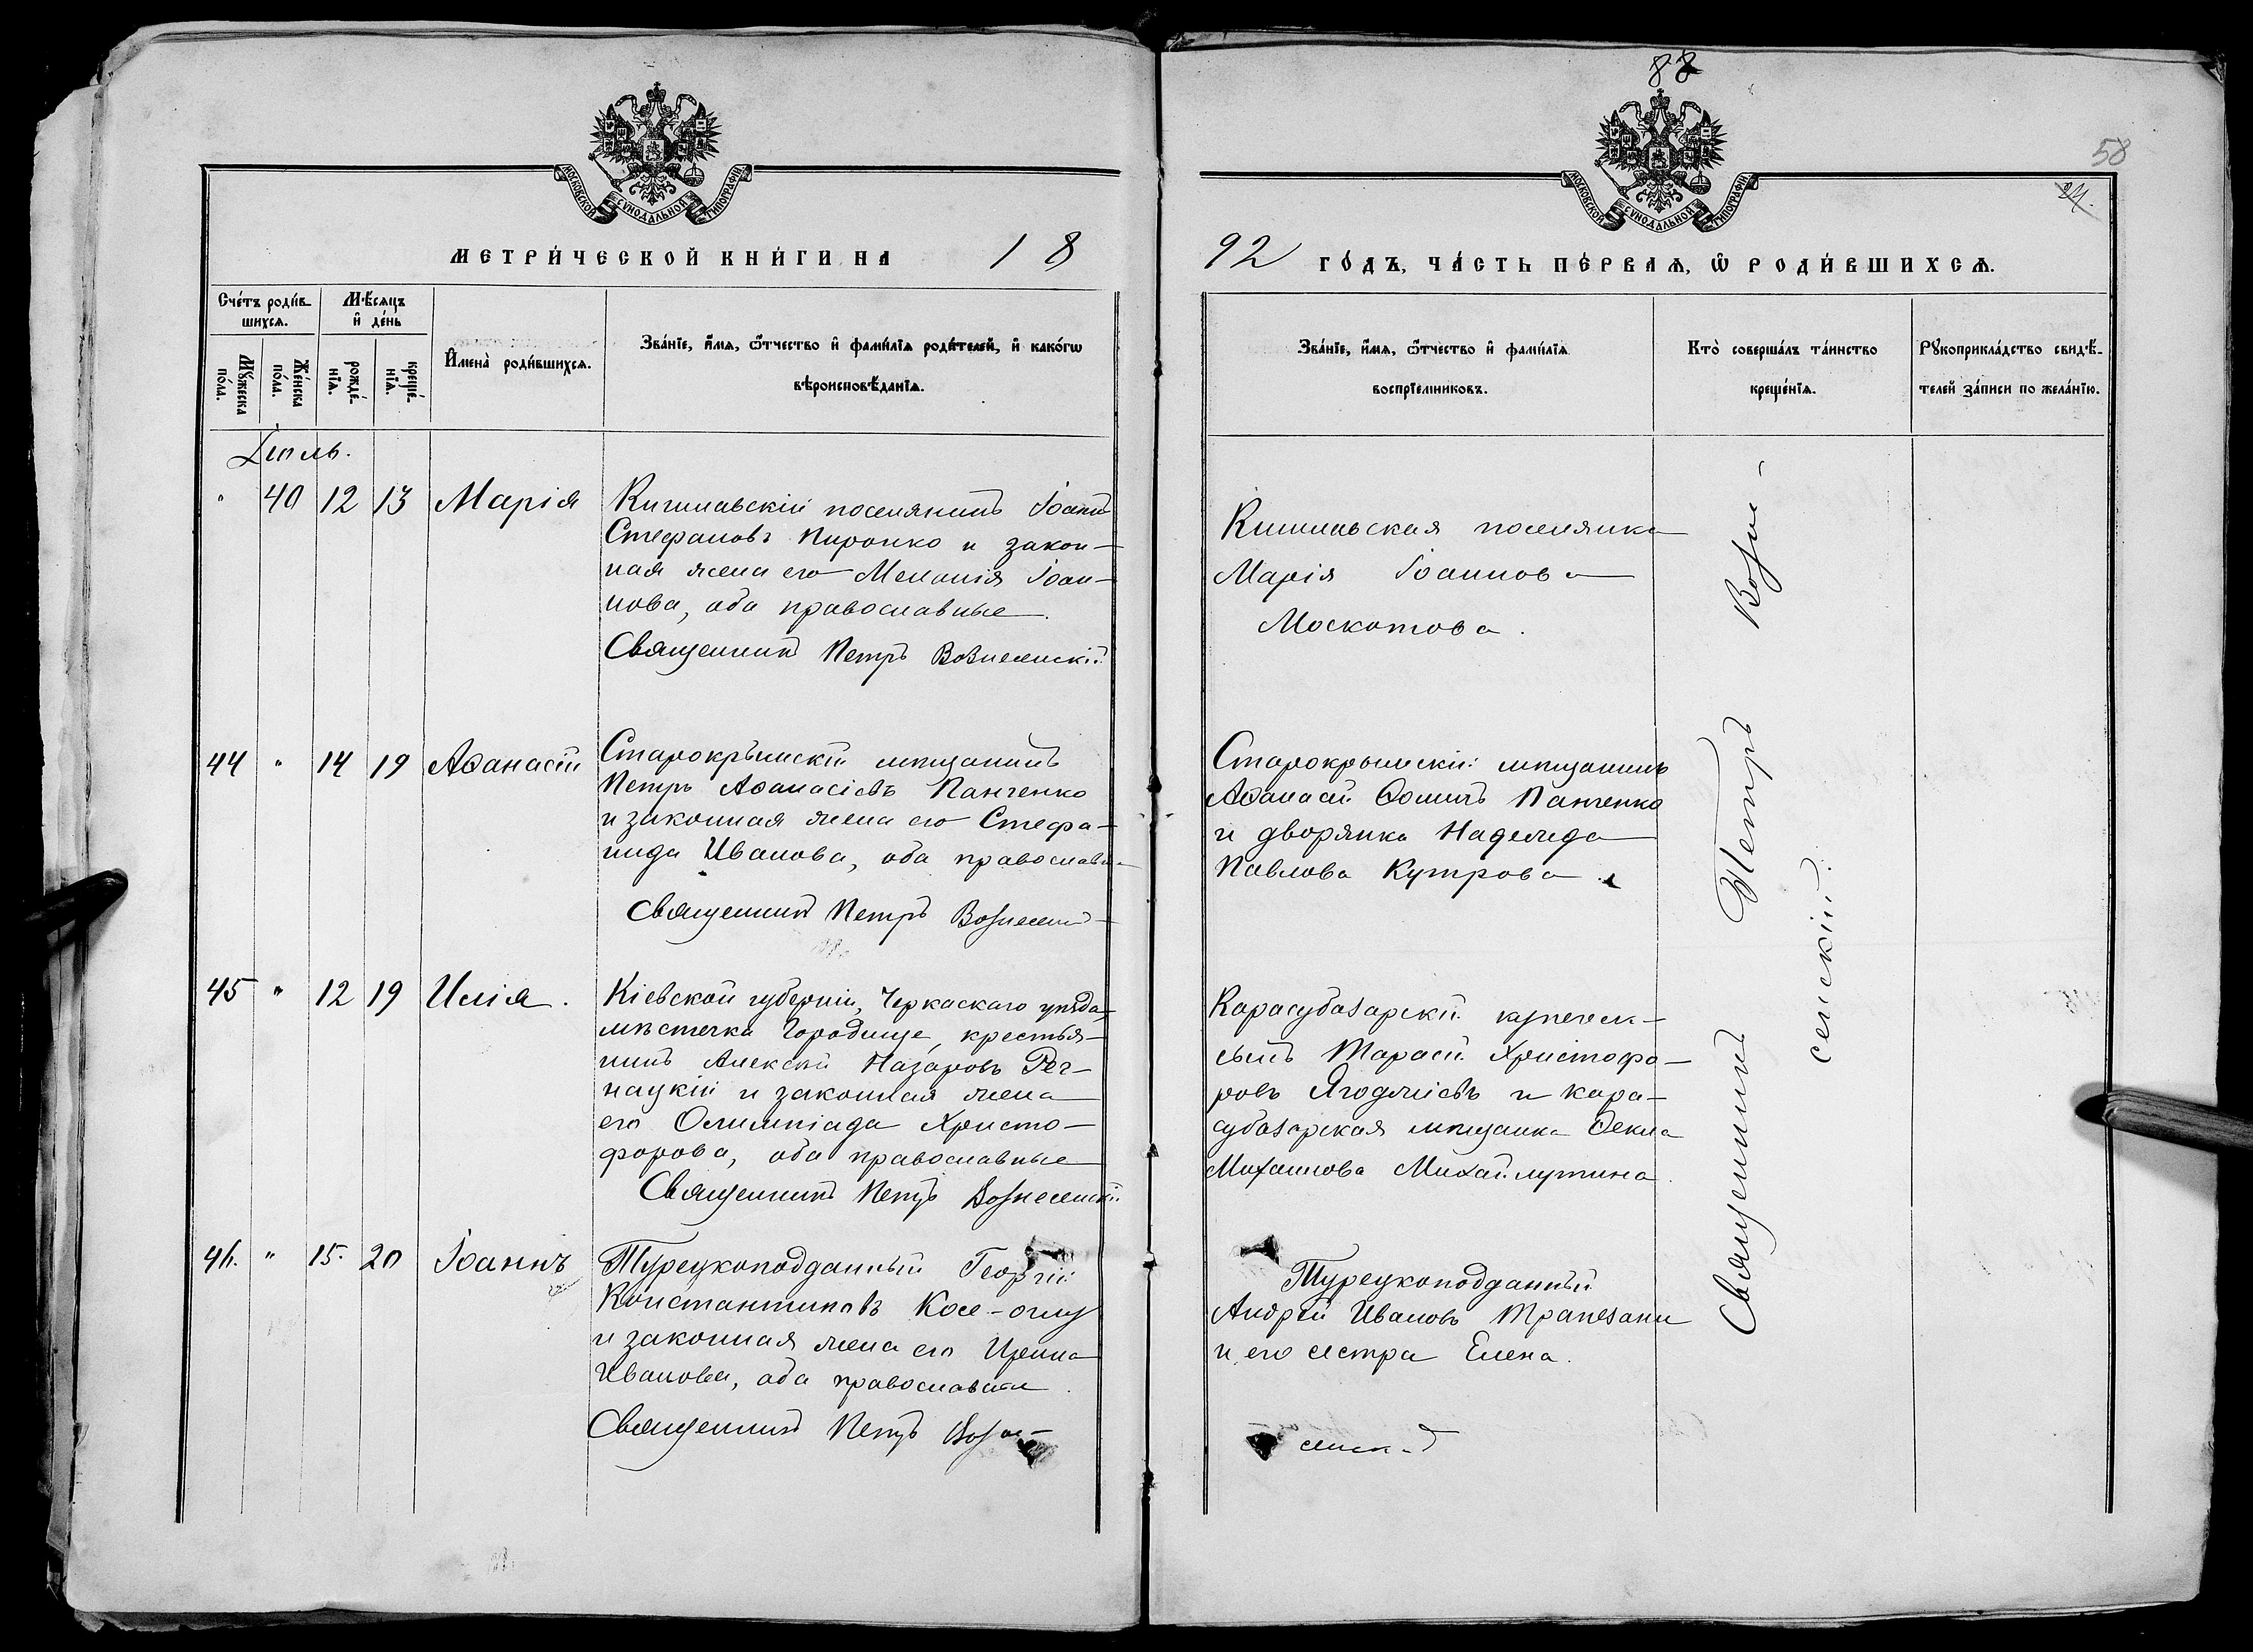 88
58
24.
МОСКОВСКОЙ СѴНОДАЛЬНОЙ ТИПОГРАФІИ
МОСКОВСКОЙ СѴНОДАЛЬНОЙ ТИПОГРАФІИ
МЕТРИ́ЧЕСКОЙ КНИ́ГИ НА 18
92 ГО́ДЪ, ЧА́СТЬ ПЕ́РВАѦ, Ѡ҆ РОДИ́ВШИХСѦ.
Сче́тъ роди́в-
шихсѧ.
Мꙋ́жеска по́ла.
Же́нска по́ла.
Мѣ́сѧцъ
и҆ де́нь
рожде́-
нїѧ.
креще́-
нїѧ.
И҆мена̀ роди́вшихсѧ.
Зва́нїе, и҆́мѧ, ѻ҆́тчество и҆ фами́лїѧ роди́телей, и҆ како́гѡ
вѣроисповѣ́данїѧ.
Зва́нїе, и҆́мѧ, ѻ҆́тчество и҆ фами́лїѧ
воспрїе́мниковъ.
Кто̀ соверша́лъ та́инство
креще́нїѧ.
Рꙋкоприкла́дство свидѣ́-
телей за́писи по жела́нїю.
Іюль.
" 40 12 13 Марія
Кишлавскій поселянинъ Іоаннъ
Стефановъ Пиронко и закон-
ная жена его Меланія Іоан-
нова, оба православные.
Священникъ Петръ Вознесенскій
Кишлавская поселянка
Марія Іоаннова
Москотова.
44 " 14 19 Аѳанасій
Старокрымскій мѣщанинъ
Петръ Аѳанасіевъ Панченко
и законная жена его Стефа-
нида Иванова, оба православн
Священникъ Петръ Вознесен
Старокрымскій мѣщанинъ
Аѳанасій Ѳоминъ Панченко
и дворянка Надежда
Павлова Кутрова.
45 " 12 19 Илія.
Кіевской губерніи, Черкаскаго уѣзда,
мѣстечка Городище, крестья-
нинъ Алексѣй Назаровъ
и законная жена
его Олимпіада Христо-
форова, оба православные
Священникъ Петръ Вознесенскій
Карасубазарскій купеческ-
сынъ Тарасій Христофо-
ровъ Ягоджіевъ и кара-
субазарская мѣщанка Ѳекла
Михаилова Михайлутина.
46. " 15. 20 Іоаннъ
Турецкоподданный Георгій
Константиновъ Косе-оглу
и законная жена его Ирина
Иванова, оба православные.
Священникъ Петръ Возне-
сенскій
Турецкоподданный
Андрей Ивановъ Трапезани
и его сестра Елена.
Священникъ Петръ Возне-
сенскій.